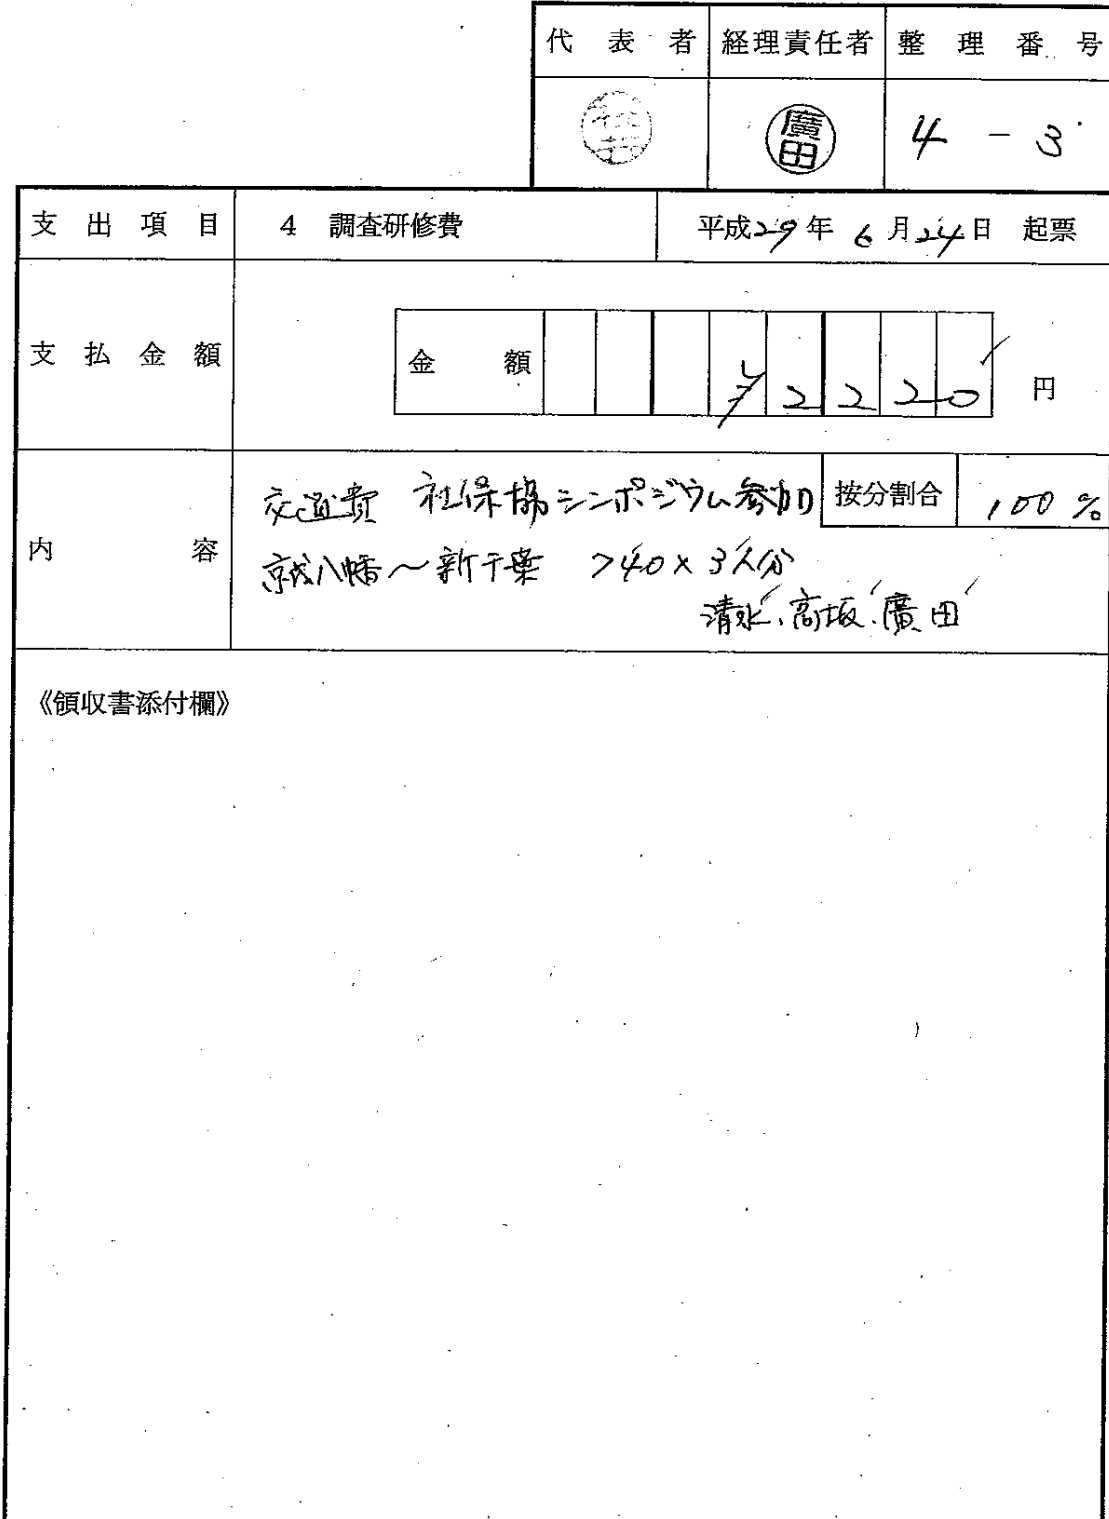 代表者 経理責任者 整理番号
廣田 4 - 3
支出項目 4 調査研修費 平成29年 6月24日 起票
支払金額 金額 ¥2220 円
交通費 社保協シンポジウム参加 按分割合 100%
内容
京成八幡～新千葉 740×3人分
清水、高坂、廣田
《領収書添付欄》